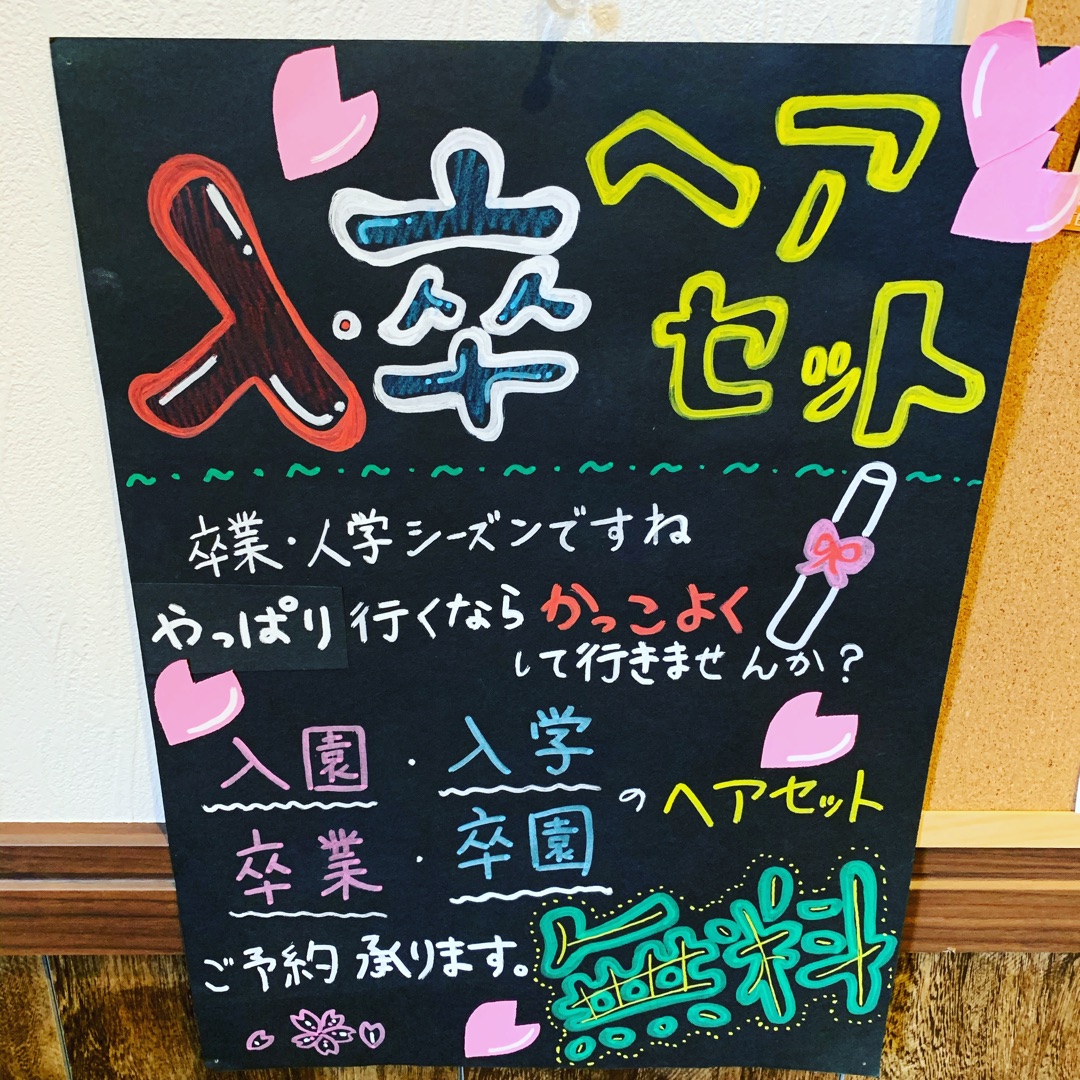 入・卒 ヘア
セット
卒業・入学シーズンですね
やっぱり行くならかっこよく
して行きませんか？
入園・入学
のヘアセット
卒業・卒園
無料
ご予約承ります。